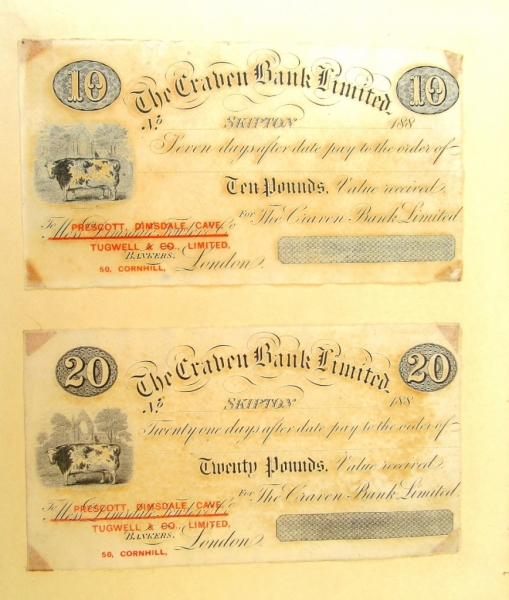 10 10
The Craven Bank Limited.
No SKIPTON 188
Seven days after date pay to the order of
Ten Pounds. Value received
For The Craven Bank Limited
To Messrs Dimsdale
PRESCOTT, DIMSDALE, CAVE,
TUGWELL & CO., LIMITED,
BANKERS,
50, CORNHILL, London.
20 20
The Craven Bank Limited.
No SKIPTON 188
Twenty one days after date pay to the order of
Twenty Pounds. Value received
For The Craven Bank Limited
To Messrs Dimsdale
PRESCOTT, DIMSDALE, CAVE,
TUGWELL & CO., LIMITED,
BANKERS,
50, CORNHILL, London.